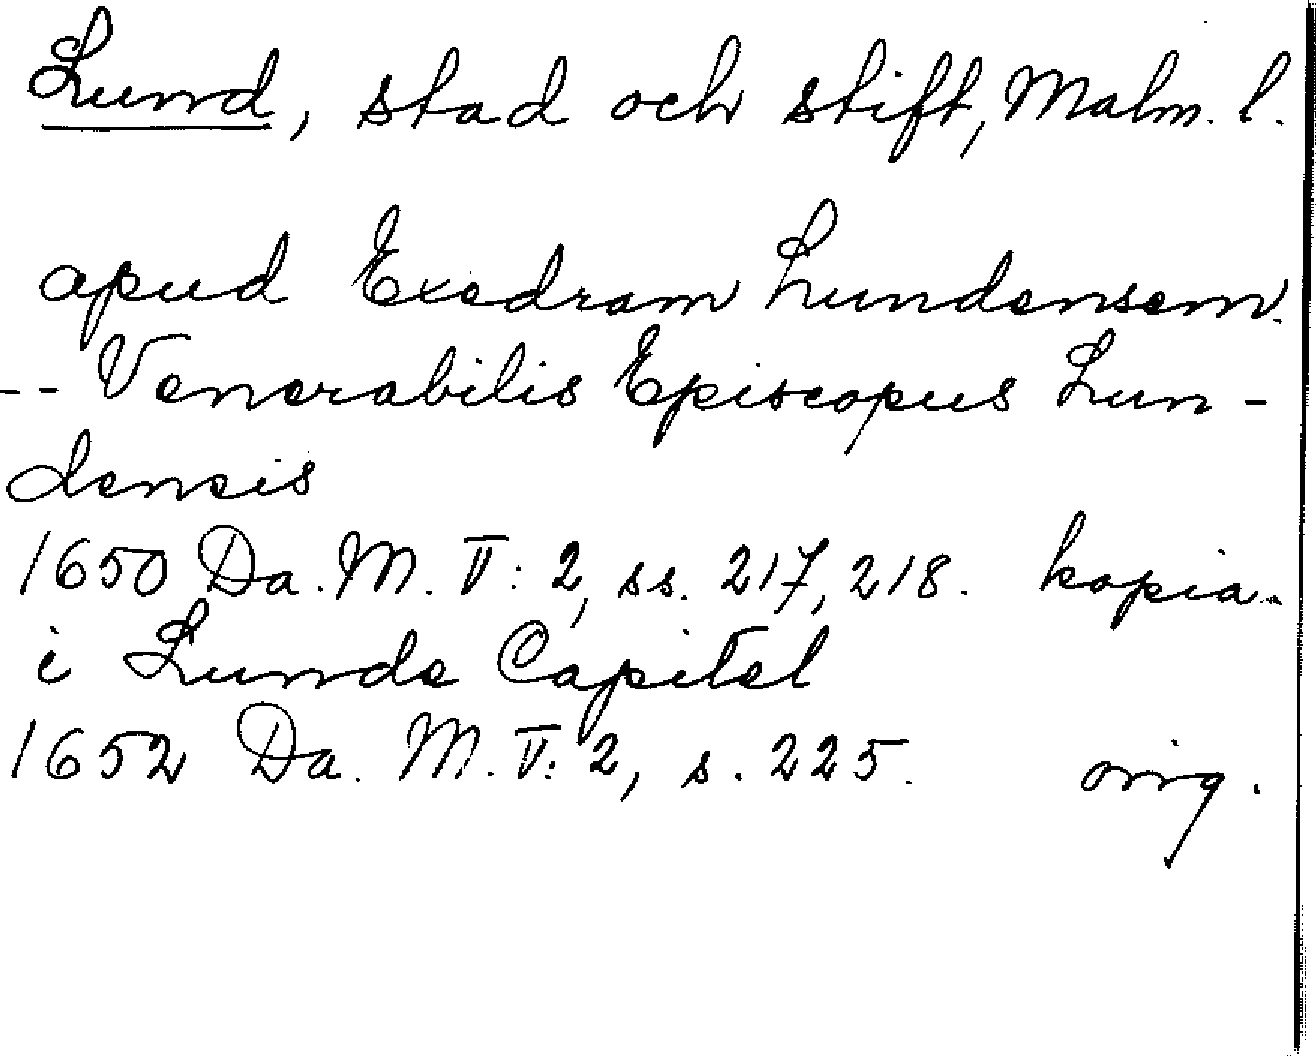 Lund, stad och stift, Malm. l.
apud Exedram Lundensem.
-- Venerabilis Episcopus Lun-
densis
1650 Da. M. V: 2, ss. 217, 218. kopia.
i Lunde Capitel
1652 Da. M. V: 2, s. 225. orig.